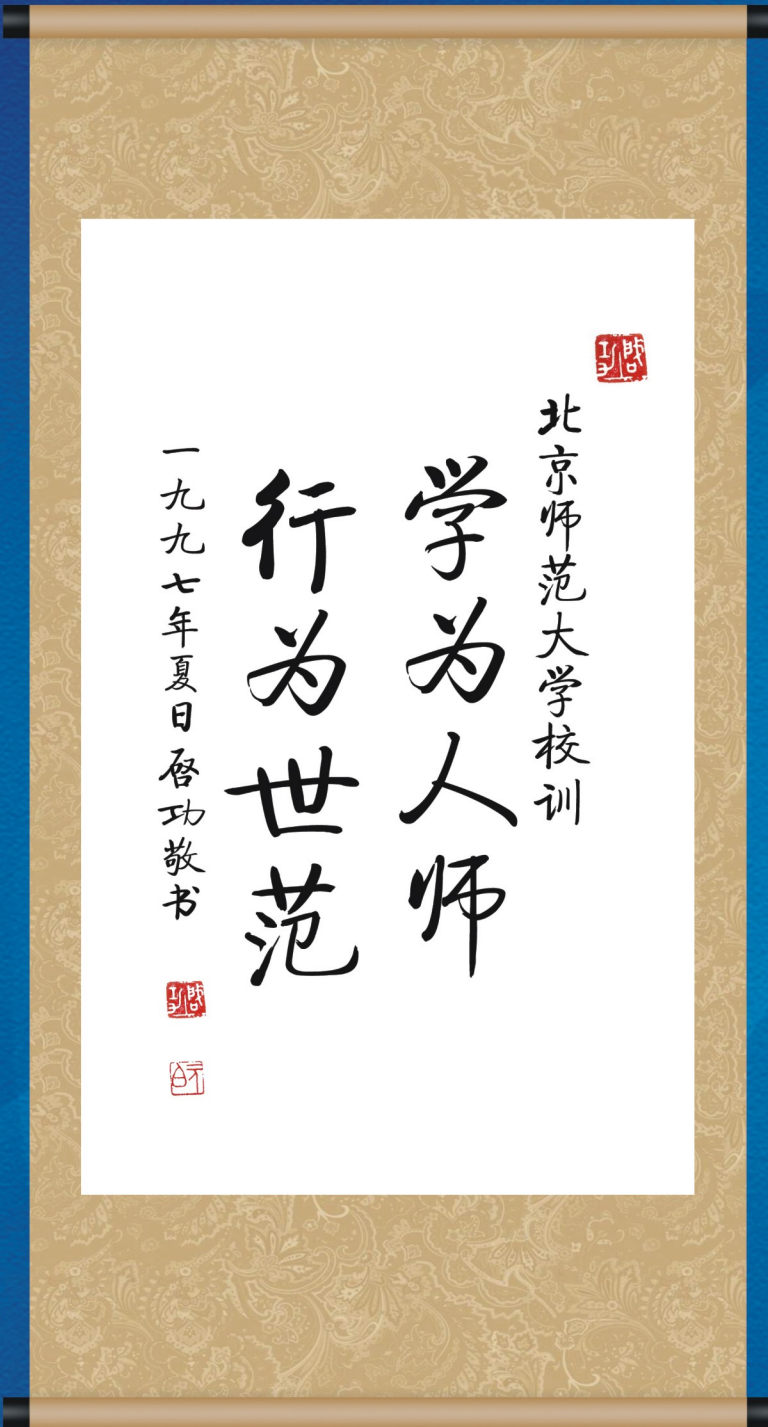 北京师范大学校训
学为人师
行为世范
一九九七年夏日启功敬书
启功
启功
元白